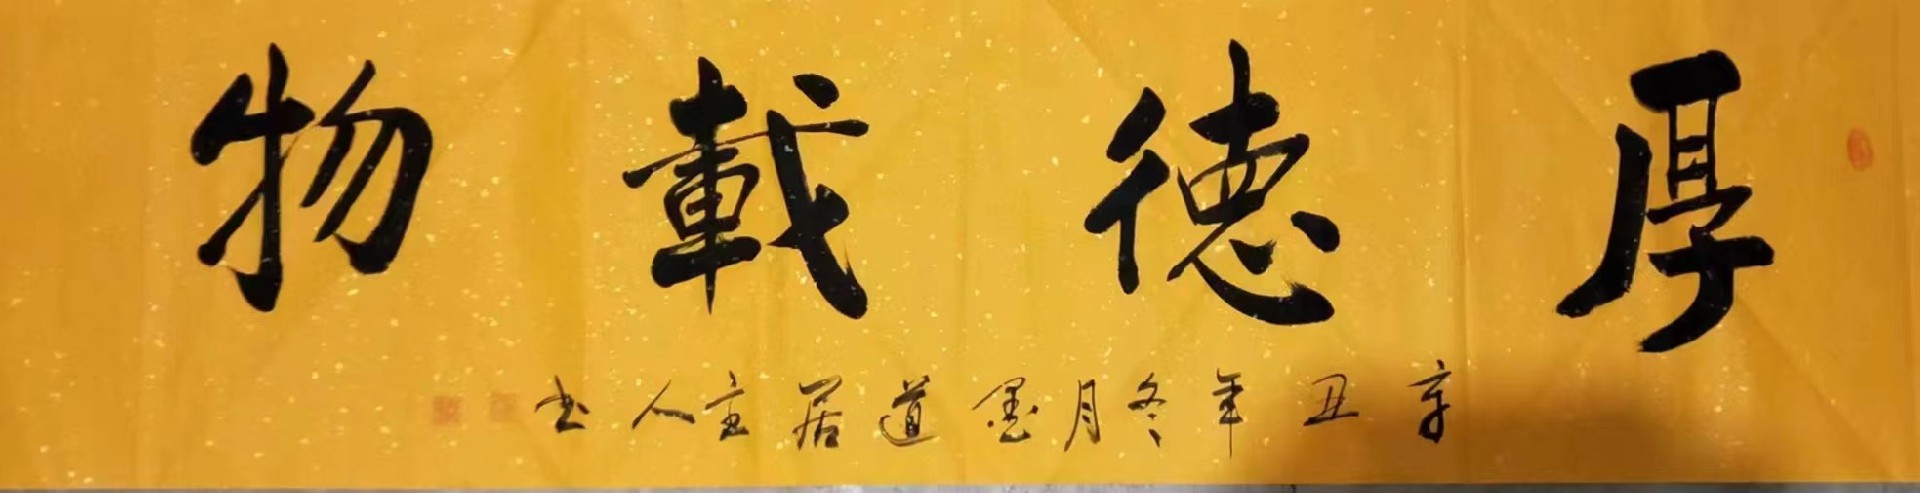 厚德載物
辛丑年冬月墨道居主人书